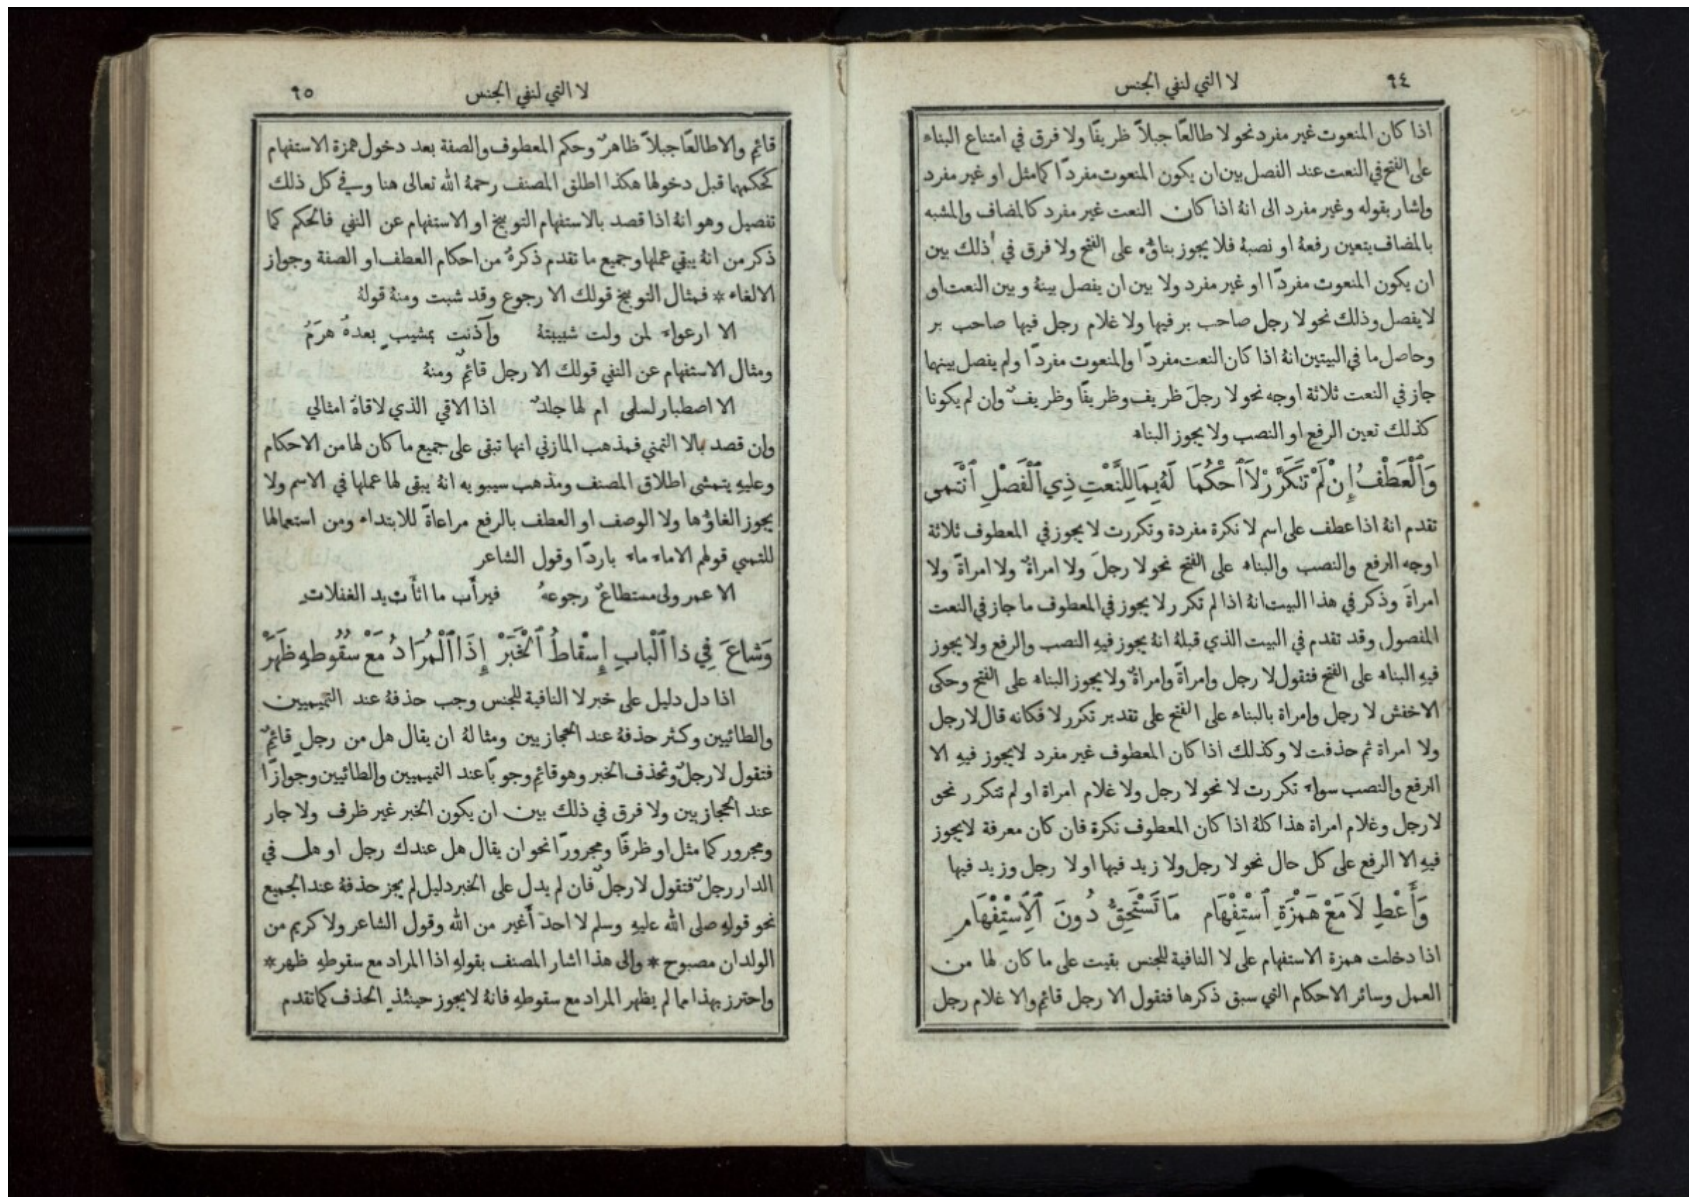 ٩٤
لا التي لنفي الجنس
اذا كان المنعوت غير مفرد نحو لا طالعًا جبلاً ظريفًا ولا فرق في امتناع البناء
على الفتح في النعت عند الفصل بين ان يكون المنعوت مفردًا كما مثل او غير مفرد
واشار بقوله وغير مفرد الى انهُ اذا كان النعت غير مفرد كالمضاف والمشبه
بالمضاف يتعين رفعهُ او نصبهُ فلا يجوز بناؤه على الفتح ولا فرق في ذلك بين
ان يكون المنعوت مفردًا او غير مفرد ولا بين ان يفصل بينهُ وبين النعت او
لا يفصل وذلك نحو لا رجل صاحب بر فيها ولا غلام رجل فيها صاحب بر
وحاصل ما في البيتين انهُ اذا كان النعت مفردًا والمنعوت مفردًا ولم يفصل بينهما
جاز في النعت ثلاثة اوجه نحو لا رجلَ ظريف وظريفًا وظريفٌ وان لم يكونا
كذلك تعين الرفع او النصب ولا يجوز البناء
وَٱلْعَطْفُ إِنْ لَمْ تَتَكَرَّرْ لاَ ٱحْكُمَا لَهُ بِمَا لِلنَّعْتِ ذِي ٱلْفَصْلِ ٱنْتَمى
تقدم انهُ اذا عطف على اسم لا نكرة مفردة وتكررت لا يجوز في المعطوف ثلاثة
اوجه الرفع والنصب والبناء على الفتح نحو لا رجلَ ولا امراةٌ ولا امراةً ولا
امراةَ وذكر في هذا البيت انهُ اذا لم تكرر لا يجوز في المعطوف ما جاز في النعت
المفصول وقد تقدم في البيت الذي قبلهُ انهُ يجوز فيهِ النصب والرفع ولا يجوز
فيهِ البناء على الفتح فتقول لا رجل وامراةً وامراةٌ ولا يجوز البناء على الفتح وحكى
الاخفش لا رجل وامراة بالبناء على الفتح على تقدير تكرر لا فكانه قال لا رجل
ولا امراة ثم حذفت لا وكذلك اذا كان المعطوف غير مفرد لا يجوز فيهِ الا
الرفع والنصب سواء تكررت لا نحو لا رجل ولا غلام امراة او لم تتكرر نحو
لا رجل وغلام امراة هذا كلهُ اذا كان المعطوف نكرة فان كان معرفة لا يجوز
فيهِ الا الرفع على كل حال نحو لا رجل ولا زيد فيها او لا رجل وزيد فيها
وَأَعْطِ لاَ مَعْ هَمْزَةِ ٱسْتِفْهَامِ مَا تَسْتَحِقُّ دُونَ ٱلاِسْتِفْهَامِ
اذا دخلت همزة الاستفهام على لا النافية للجنس بقيت على ما كان لها من
العمل وسائر الاحكام التي سبق ذكرها فتقول الا رجل قائم والا غلام رجل
٩٥
لا التي لنفي الجنس
قائم والا طالعًا جبلاً ظاهرٌ وحكم المعطوف والصفة بعد دخول همزة الاستفهام
كحكمهما قبل دخولها هكذا اطلق المصنف رحمهُ الله تعالى هنا وفي كل ذلك
تفصيل وهو انهُ اذا قصد بالاستفهام التوبيخ او الاستفهام عن النفي فالحكم كما
ذكر من انهُ يبقى عملها وجميع ما تقدم ذكرهُ من احكام العطف او الصفة وجواز
الالغاء * فمثال التوبيخ قولك الا رجوع وقد شبت ومنهُ قولهُ
الا ارعواء لمن ولت شبيبتهُ وآذنت بمشيبٍ بعدهُ هرَمُ
ومثال الاستفهام عن النفي قولك الا رجل قائمٌ ومنهُ
الا اصطبار لسلمى ام لها جلدٌ اذا الاقي الذي لاقاهُ امثالي
وان قصد بالا التمني فمذهب المازني انها تبقى على جميع ما كان لها من الاحكام
وعليهِ يتمشى اطلاق المصنف ومذهب سيبويه انهُ يبقى لها عملها في الاسم ولا
يجوز الغاؤها ولا الوصف او العطف بالرفع مراعاةً للابتداء ومن استعمالها
للتمني قولهم الا ماء ماء باردًا وقول الشاعر
الا عمر ولى مستطاعٌ رجوعهُ فيرأَب ما اثأَت يد الغفلاتِ
وَشَاعَ فِي ذا ٱلْبَابِ إِسْقاطُ ٱلْخَبَرْ إِذَا ٱلْمُرَادُ مَعْ سُقُوطهِ ظَهَرْ
اذا دل دليل على خبر لا النافية للجنس وجب حذفهُ عند التميميين
والطائيين وكثر حذفهُ عند الحجازيين ومثالهُ ان يقال هل من رجلٍ قائمٌ
فتقول لا رجلٌ وتحذف الخبر وهو قائم وجوبًا عند التميميين والطائيين وجوازًا
عند الحجازيين ولا فرق في ذلك بين ان يكون الخبر غير ظرف ولا جار
ومجرور كما مثل او ظرفًا ومجرورًا نحو ان يقال هل عندك رجل او هل في
الدار رجلٌ فتقول لا رجلٌ فان لم يدل على الخبر دليل لم يجز حذفهُ عند الجميع
نحو قولهِ صلى الله عليهِ وسلم لا احدَ أَغير من الله وقول الشاعر ولا كريم من
الولدان مصبوح * والى هذا اشار المصنف بقولهِ اذا المراد مع سقوطهِ ظهر *
واحترز بهذا مما لم يظهر المراد مع سقوطهِ فانهُ لا يجوز حينئذٍ الحذف كما تقدم